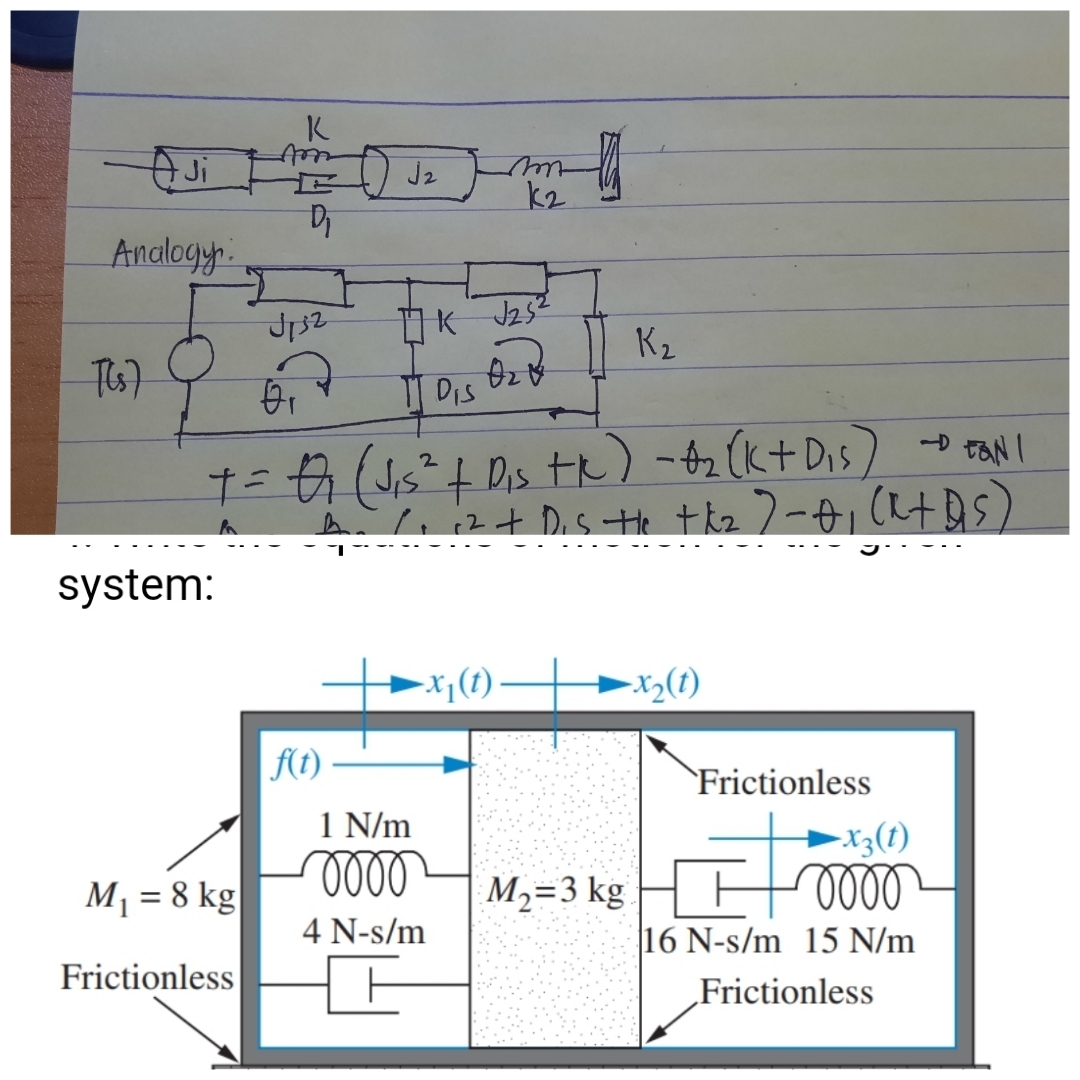 K
J1
J2
D1
K2
Analogy:
J1s2
K
J2s2
K2
T(s)
θ1
D1s
θ2
T = θ1 (J1s2 + D1s + K) - θ2 (K + D1s)
s2 + D1s + K + K2) - θ1 (K + D1s)
system:
x1(t)
x2(t)
f(t)
Frictionless
1 N/m
x3(t)
M1 = 8 kg
M2=3 kg
4 N-s/m
16 N-s/m 15 N/m
Frictionless
Frictionless